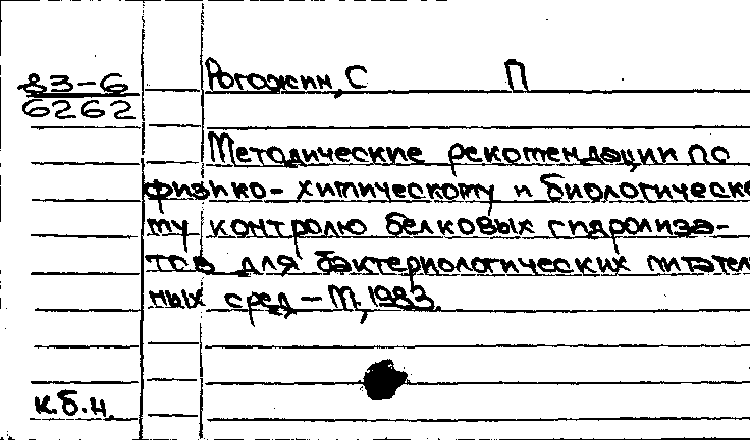 83-6
6262
Рогожин, С П
Методические рекомендации по
физико-химическому и биологическо
му контролю белковых гидролиза-
тов для бактериологических питател
ных сред - М., 1983.
к.б.н.